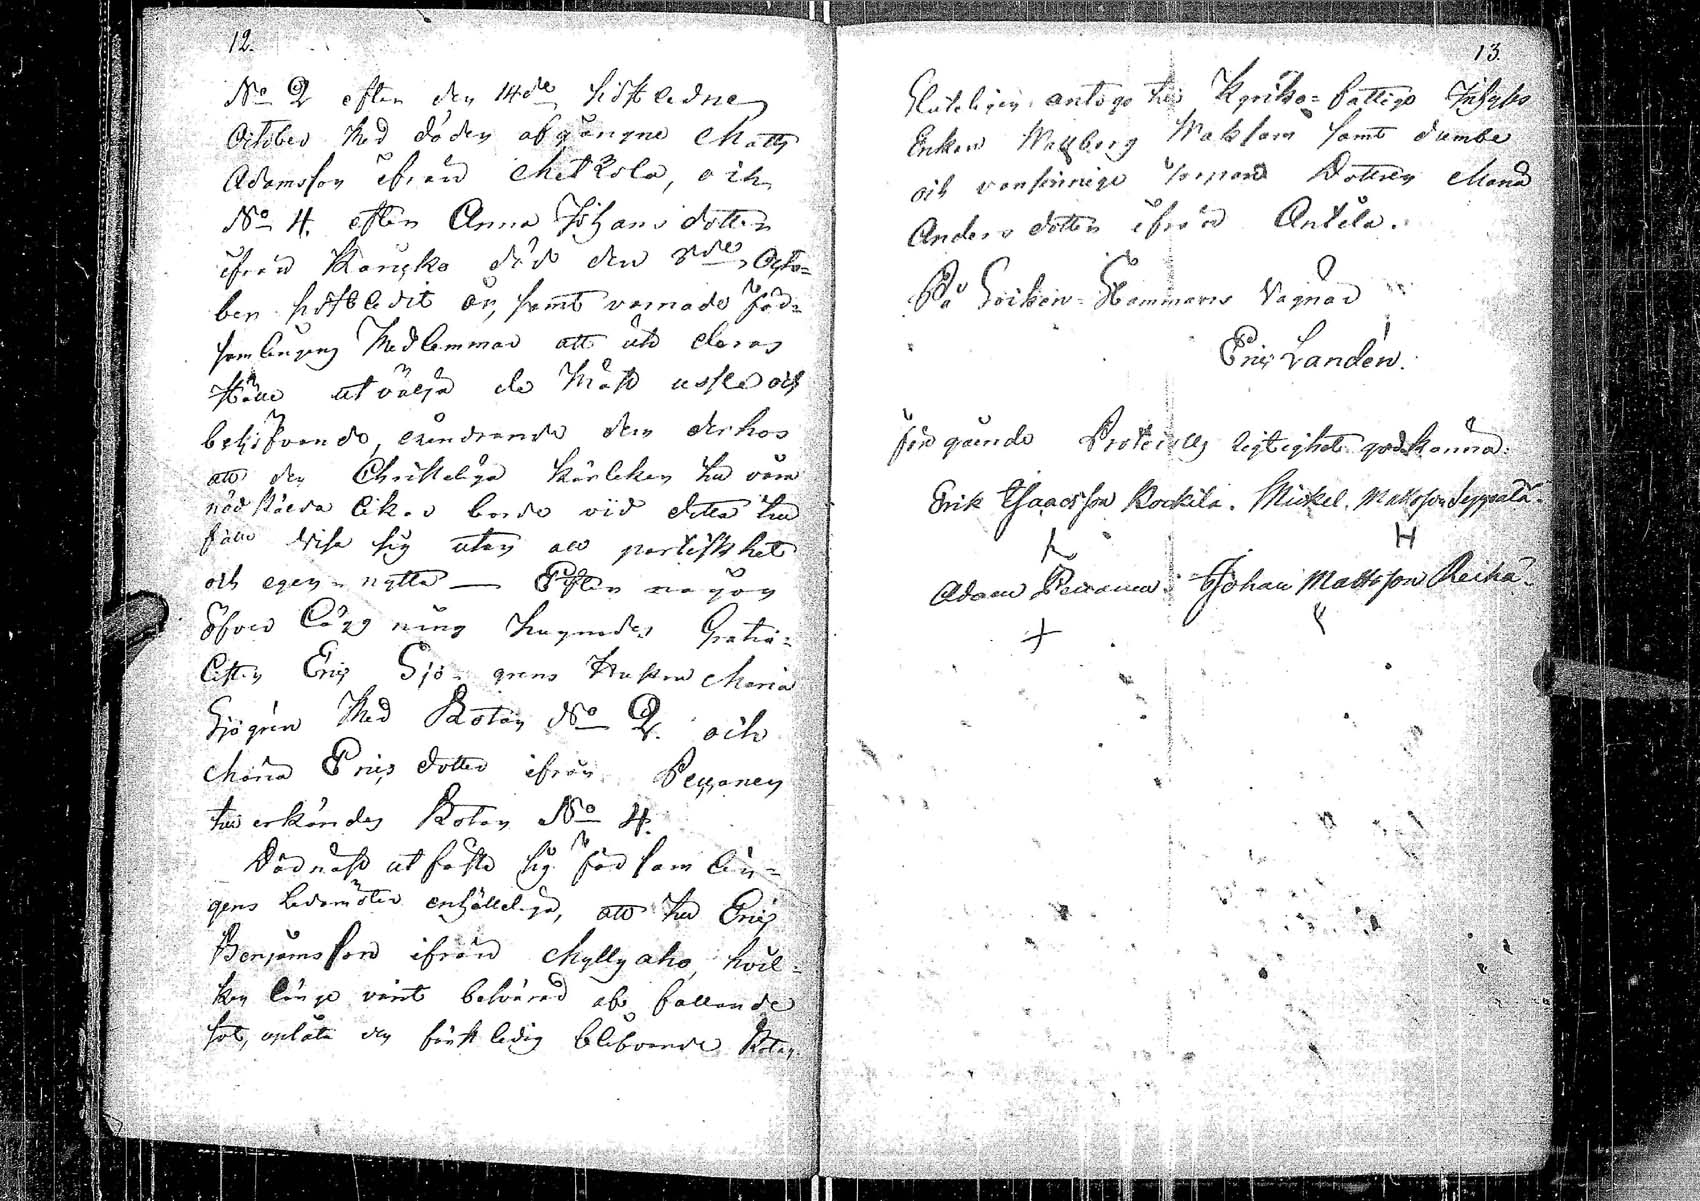 12.
No 2 efter den 14de sistledne
October med döden afgångne Matts
Adamsson ifrån Mikkola, och
No 4. efter Anna Johans dotter
ifrån Kangko död den 8de Octo=
ber sistledit år, samt varnade För=
samlingens Medlemmar att uti deras
ställe utvälja de mäst usle och
behöfvande, erindrande dem derhos
att den Christeliga kärleken til våra
nödstälda likar borde vid detta til
fälle visa sig utan all partiskhet
och egen-nytta — Efter någon
öfverläggning hugnades Gratia=
listen Eric Sjö-grens Hustru Maria
Sjögren med Rotan No 2. och
Maria Erics dotter ifrån
tilerkändes Rotan No 4.
Därnäst utfäste sig Församlin=
gens Ledamöter enhälleliga, att til Eric
Benjamsson ifrån Myllyaho, hvil=
ken länge varit besvärad af fallande
sot, uplåta den först ledig blifvande Rotan.
13.
Sluteligen antogs til Kyrko=fattige Inhyses
Enkan Wallborg samt dumbe
och vansinnige Dottren Maria
Anders dotter ifrån Anttila.
På Socken-Stämmans Vägnar
Eric Landén.
föregående Protocolls rigtighet godkänna:
Erik Isaacsson Kockila. Mickel Mattsson Seppälä.
H
Adam Johan Mattsson
+